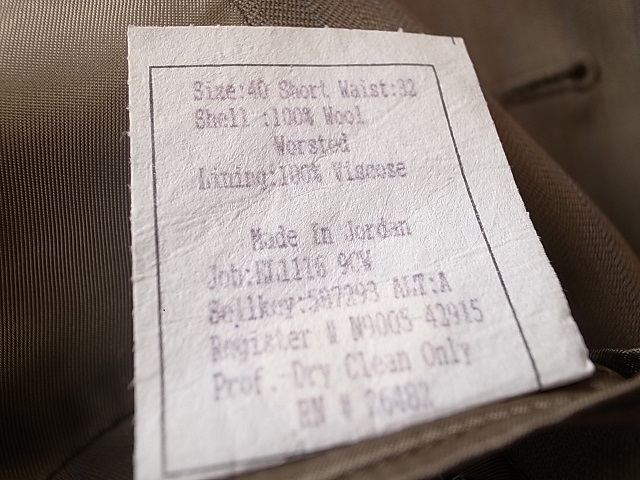 Size:40 Short Waist:32
Shell :100% Wool
Worsted
Lining:100% Viscose
Made In Jordan
Job: 9CW
Sellkey:597293 ALT:A
Register # N9005-42915
Prof. Dry Clean Only
RN # 76482